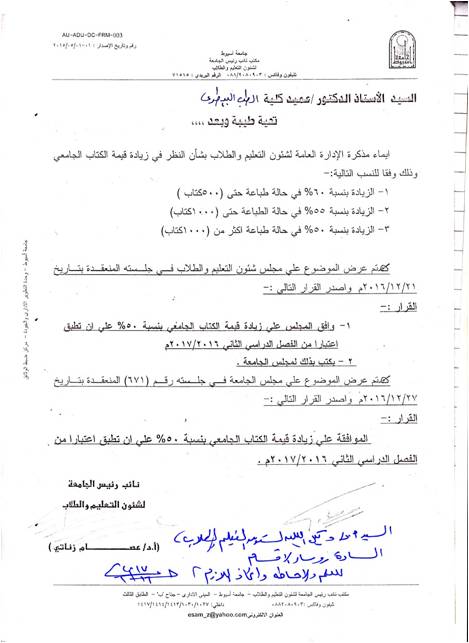 AU-ADU-OC-FRM-003
جامعة أسيوط
مكتب نائب رئيس الجامعة
لشئون التعليم والطلاب
السيد الأستاذ الدكتور / عميد كلية الطب البيطرى
تحية طيبة وبعد ،،،،
ايماء مذكرة الإدارة العامة لشئون التعليم والطلاب بشأن النظر في زيادة قيمة الكتاب الجامعي
وذلك وفقا للنسب التالية:-
١- الزيادة بنسبة ٦٠% في حالة طباعة حتى (٥٠٠كتاب )
٢- الزيادة بنسبة ٥٥% في حالة الطباعة حتى (١٠٠٠كتاب)
٣- الزيادة بنسبة ٥٠% في حالة طباعة اكثر من (١٠٠٠كتاب)
كما تم عرض الموضوع علي مجلس شئون التعليم والطلاب في جلسته المنعقدة بتاريخ
٢٠١٦/١٢/٢١م واصدر القرار التالي :-
القرار :-
١- وافق المجلس علي زيادة قيمة الكتاب الجامعي بنسبة ٥٠% علي ان تطبق
اعتبارا من الفصل الدراسي الثاني ٢٠١٧/٢٠١٦م
٢- يكتب بذلك لمجلس الجامعة .
كما تم عرض الموضوع علي مجلس الجامعة في جلسته رقم (٦٧١) المنعقدة بتاريخ
٢٠١٦/١٢/٢٧م واصدر القرار التالي :-
القرار :-
الموافقة علي زيادة قيمة الكتاب الجامعي بنسبة ٥٠% علي ان تطبق اعتبارا من
الفصل الدراسي الثاني ٢٠١٧/٢٠١٦م .
نائب رئيس الجامعة
لشئون التعليم والطلاب
(أ.د/ عصام زناتي)
السادة رؤساء الاقسام
للعلم والاحاطة واتخاذ اللازم
مكتب نائب رئيس الجامعة لشئون التعليم والطلاب - جامعة أسيوط - المبنى الإداري - الطابق الثالث
العنوان الالكترونى esam_z@yahoo.com